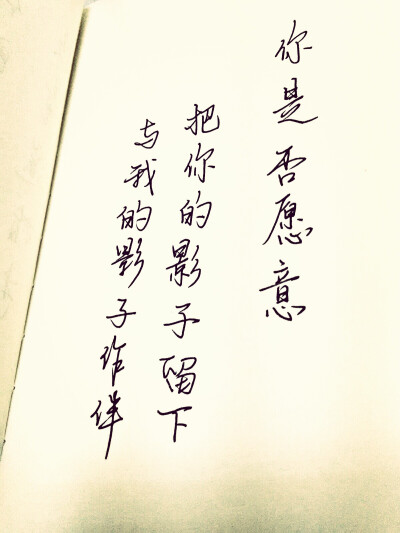 你是否愿意
把你的影子留下
与我的影子作伴